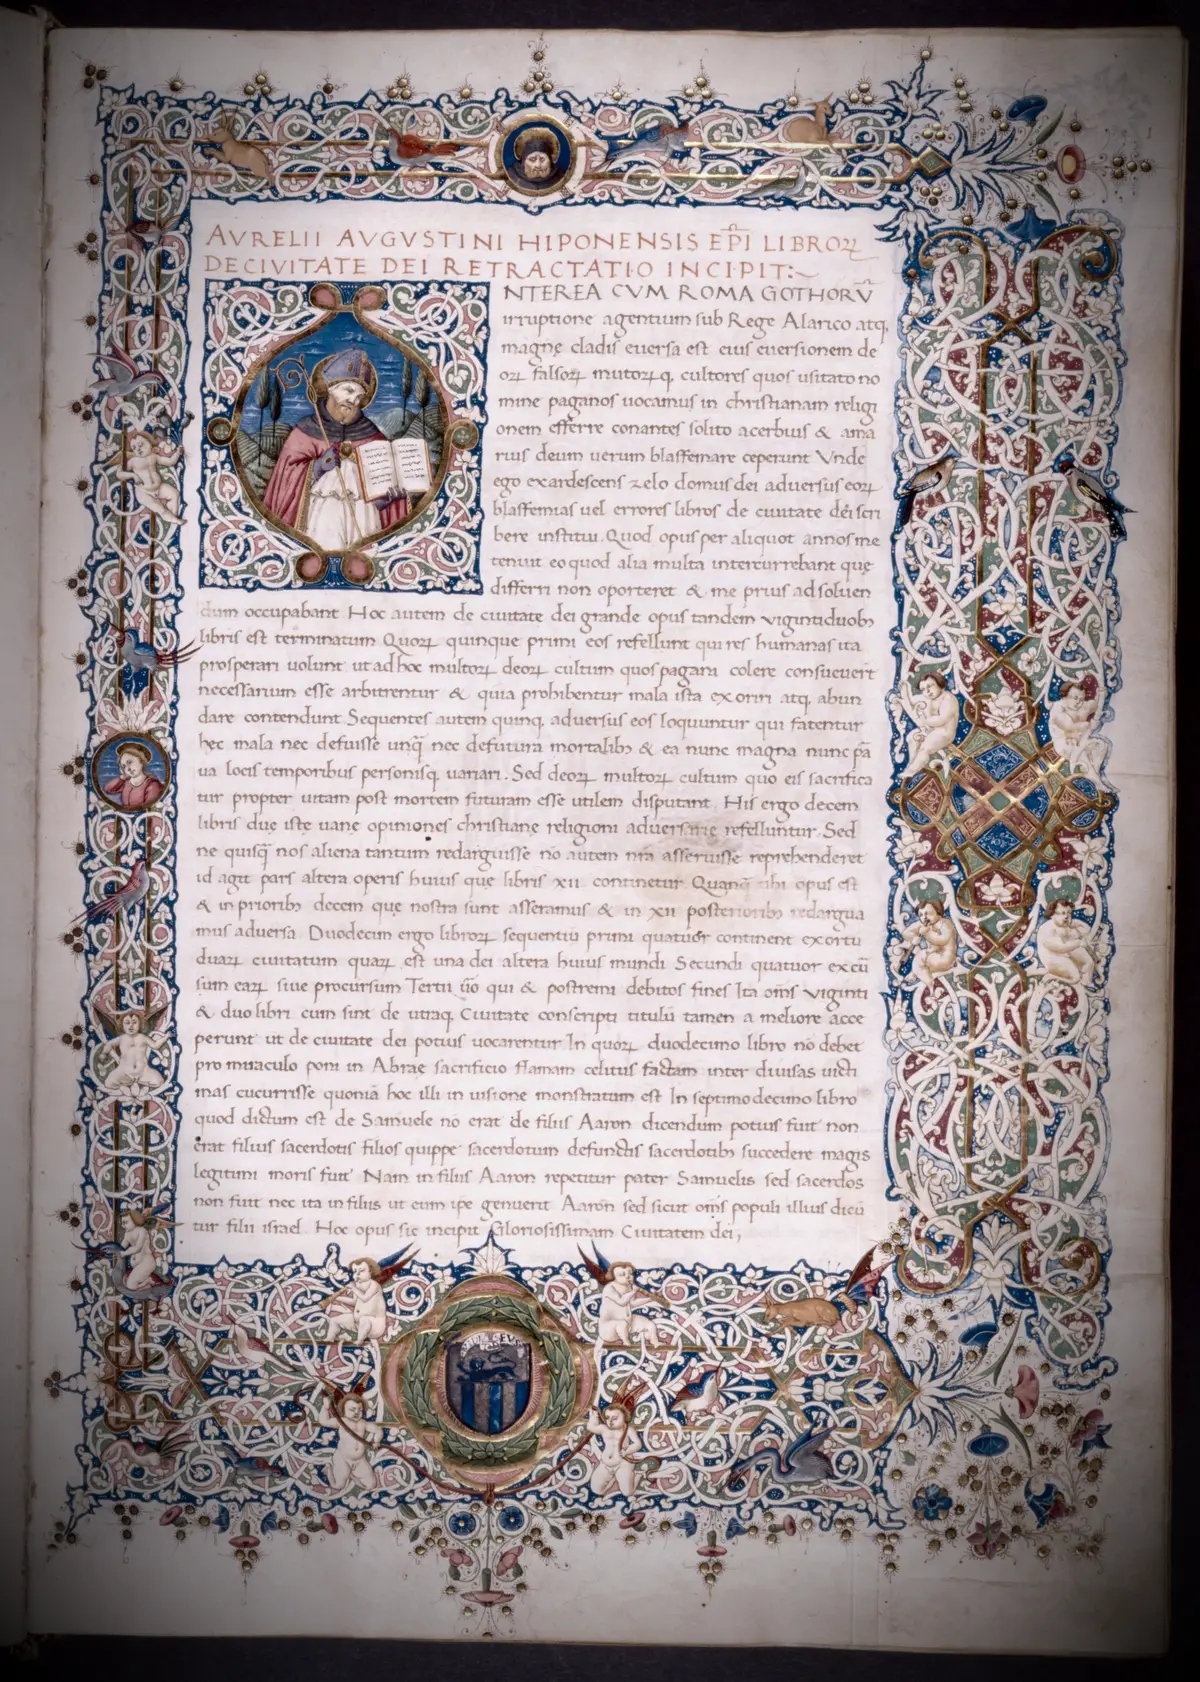 AVRELII AVGVSTINI HIPONENSIS EP̅I LIBROꝜ
DE CIVITATE DEI RETRACTATIO INCIPIT:~
NTEREA CVM ROMA GOTHORV̅
irruptione agentium sub Rege Alarico atq,
magnę cladis euersa est eius euersionem de
oꝝ falsoꝝ mutorꝝq, cultores quos usitato no
mine paganos uocamus in christianam religi
onem efferre conantes solito acerbius & ama
rius deum uerum blasfemare ceperunt Vnde
ego exardescens zelo domus dei aduersus eoꝝ
blasfemias uel errores libros de ciuitate dei scri
bere institui. Quod opus per aliquot annos me
tenuit eo quod alia multa intercurrebant quę
differri non oporteret & me prius ad soluen
dum occupabant. Hoc autem de ciuitate dei grande opus tandem uigintiduobꝫ
libris est terminatum Quoꝝ quinque primi eos refellunt qui res humanas ita
prosperari uolunt ut ad hoc multoꝝ deoꝝ cultum quos pagani colere consueuert̅
necessarium esse arbitrentur & quia prohibentur mala ista exoriri atq, abun
dare contendunt Sequentes autem quinq, aduersus eos loquuntur qui fatentur
hęc mala nec defuisse unq̅ nec defutura mortalibꝫ & ea nunc magna nunc pa̅
ua locis temporibus personisq, uariari. Sed deoꝝ multoꝝ cultum quo eis sacrifica
tur propter uitam post mortem futuram esse utilem disputant. His ergo decem
libris duę iste uane opiniones christiane religioni aduersarię refelluntur. Sed
ne quisq̅ nos aliena tantum redarguisse no̅ autem nr̅a asseruisse reprehenderet
id agit pars altera operis huius quę libris xii continetur. Quanq̅ ubi opus est
& in prioribꝫ decem quę nostra sunt asseramus & in xii posterioribꝫ redargua
mus aduersa. Duodecim ergo libroꝝ sequentiu̅ primi quatuor continent exortu̅
duaꝝ ciuitatum quaꝝ est una dei altera huius mundi Secundi quatuor excu̅
sum eaꝝ siue procursum Tertii u̅o qui & postremi debitos fines Ita om̅s uiginti
& duo libri cum sint de utraq, Ciuitate conscripti titulu̅ tamen a meliore acce
perunt ut de ciuitate dei potius uocarentur. In quoꝝ duodecimo libro no̅ debet
pro miraculo poni in Abrae sacrificio flamam celitus factam inter diuisas uicti
mas cucurrisse quonia̅ hoc illi in uisione monstratum est In septimodecimo libro
quod dictum est de Samuele no̅ erat de filiis Aaron dicendum potius fuit non
erat filius sacerdotis filios quippe sacerdotum defunctis sacerdotibꝫ succedere magis
legitimi moris fuit Nam in filiis Aaron repetitur pater Samuelis sed sacerdos
non fuit nec ita in filiis ut eum ip̅e genuerit Aaron sed sicut om̅s populi illius dicu̅
tur filii israel. Hoc opus sic incipit Gloriosissimam Ciuitatem dei;